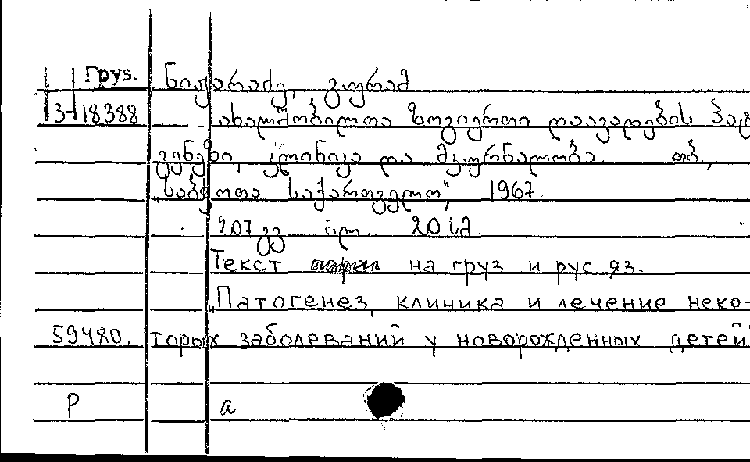 Груз. ნიჟარაძე, გიორგი
3-18388 ახალშობილთა ზოგიერთი დაავადების პათ
გენეზი, კლინიკა და მკურნალობა. თბ.,
"საბჭოთა საქართველო", 1967.
207 გვ. 20 სმ
Текст на груз и рус яз.
"Патогенез, клиника и лечение неко-
59480. торых заболеваний у новорожденных детей
Р а